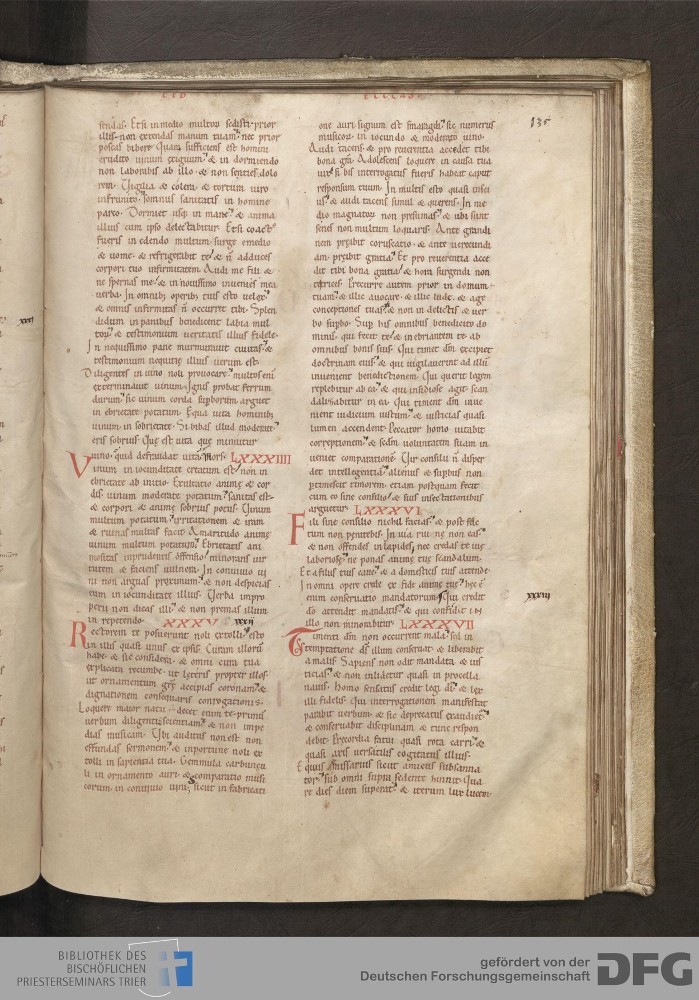 LIB
ECCLAS
135
fendas. Et si in medio multorum sedisti prior
illis non extendas manum tuam. nec prior
poscas bibere. Quam sufficiens est homini
erudito uinum exiguum. & in dormiendo
non laborabis ab illo. & non senties dolo
rem. Uigilia & colera. & tortura uiro
infrunito. somnus sanitatis in homine
parco. Dormiet usq; in mane. & anima
illius cum ipso delectabitur. Et si coact'
fueris in edendo multum. surge e medio
& uome. & refrigerabit te. & n adduces
corpori tuo infirmitatem. Audi me fili &
ne spernas me. & in nouissimo inuenies mea
uerba. In omnib; operib; tuis esto uelox.
& omnis infirmitas n occurret tibi. Splen
didum in panibus benedicent labia mul
torum. & testimonium ueritatis illius fidele.
xxxi
In nequissimo pane murmurauit ciuitas. &
testimonium nequitie illius uerum est.
Diligentes in uino noli prouocare. multos eni
exterminauit uinum. Ignis probat ferrum
durum. sic uinum corda superborum arguet
in ebrietate potatum. Equa uita hominib;
uinum in sobrietate. Si bibas illud moderate
eris sobrius. Que est uita que minuitur
uino. quid defraudat uita. Mors. LXXXIIII
Vinum in iocunditate creatum est. non in
ebrietate ab initio. Exultatio anime & cor
dis uinum moderate potatum. sanitas est
& corpori & anime sobrius potus. Uinum
multum potatum. irritationem & iram
& ruinas multas facit. Amaritudo anime
uinum multum potatum. Ebrietatis ani
mositas inprudentis offensio. minorans uir
tutem & faciens uulnera. In conuiuio ui
ni non arguas proximum. & non despicias
eum in iocunditate illius. Uerba impro
perii non dicas illi. & non premas illum
in repetendo. XXXV xxxij
Rectorem te posuerunt noli extolli. esto
in illis quasi unus ex ipsis. Curam illorum
habe. & sic considera. & omni cura tua
explicata recumbe. ut leteris propter illos
ut ornamentum gre accipias coronam. &
dignationem consequaris corrogationis.
Loquere maior natu. decet enim te primu
uerbum diligenti scientiam. & non impe
dias musicam. Ubi auditus non est non
effundas sermonem. & inportune noli ex
tolli in sapientia tua. Gemmula carbuncu
li in ornamento auri. & comparatio musi
corum. in conuiuio uini. sicut in fabricati
one auri signum est smaragdi. sic numerus
musicorum in iocundo & moderato uino.
Audi tacens. & pro reuerentia accedet tibi
bona gra. Adolescens loquere in causa tua
uix. si bis interrogatus fueris habeat caput
responsum tuum. In multis esto quasi insci
us. & audi tacens simul & querens. In me
dio magnatorum non presumas. & ubi sunt
senes non multum loquaris. Ante grandi
nem preibit coruscatio. & ante uerecundi
am preibit gratia. Et pro reuerentia acce
det tibi bona gratia. & hora surgendi non
te trices. Precurre autem prior in domum
tuam. & illic auocare. & illic lude. & age
conceptiones tuas. & non in delictis & uer
bo superbo. Super his omnibus benedicito do
minum. qui fecit te. & inebriantem te ab
omnibus bonis suis. Qui timet dm excipiet
doctrinam eius. & qui uigilauerint ad illum
inuenient benedictionem. Qui querit legem
replebitur ab ea. & qui insidiose agit scan
dalizabitur in ea. Qui timent dm inue
nient iudicium iustum. & iusticias quasi
lumen accendent. Peccator homo uitabit
correptionem. & scdm uoluntatem suam in
ueniet comparatione. Uir consilii n disper
det intellegentia. alienus & superbus non
ptimescet timorem. etiam postquam fecit
cum eo sine consilio. & suis insectationibus
arguetur. LXXXVI
Fili sine consilio nichil facias. & post fac
tum non penitebis. In uia ruine non eas.
& non offendes in lapides. nec credas te uie
laboriose. ne ponas anime tue scandalum.
Et a filiis tuis caue. & a domesticis tuis attende.
In omni opere crede ex fide anime tue. hec e
enim conseruatio mandatorum. Qui credit
xxxiii
do attendit mandatis. & qui confidit in
illo non minorabitur. LXXXVII
Timenti dm non occurrent mala. sed in
temptatione ds illum conseruat. & liberabit
a malis. Sapiens non odit mandata & ius
ticias. & non inlidetur quasi in procella
nauis. homo sensatus credit legi di. & lex
illi fidelis. Qui interrogationem manifestat
parabit uerbum. & sic deprecatus exaudiet.
& conseruabit disciplinam & tunc respon
debit. Precordia fatui quasi rota carri. &
quasi axis uersatilis cogitatus illius.
Equus emissarius sicut amicus subsanna
tor. sub omni supra sedente hinnit. Qua
re dies diem superat. & iterum lux lucem
BIBLIOTHEK DES
BISCHÖFLICHEN
PRIESTERSEMINARS TRIER
gefördert von der
Deutschen Forschungsgemeinschaft
DFG